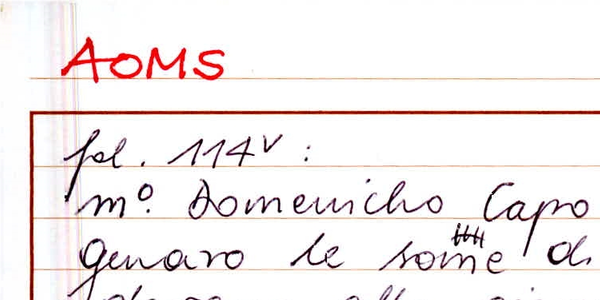 AOMS
fol. 114v :
m°. Domenicho Capo
genaro le some di